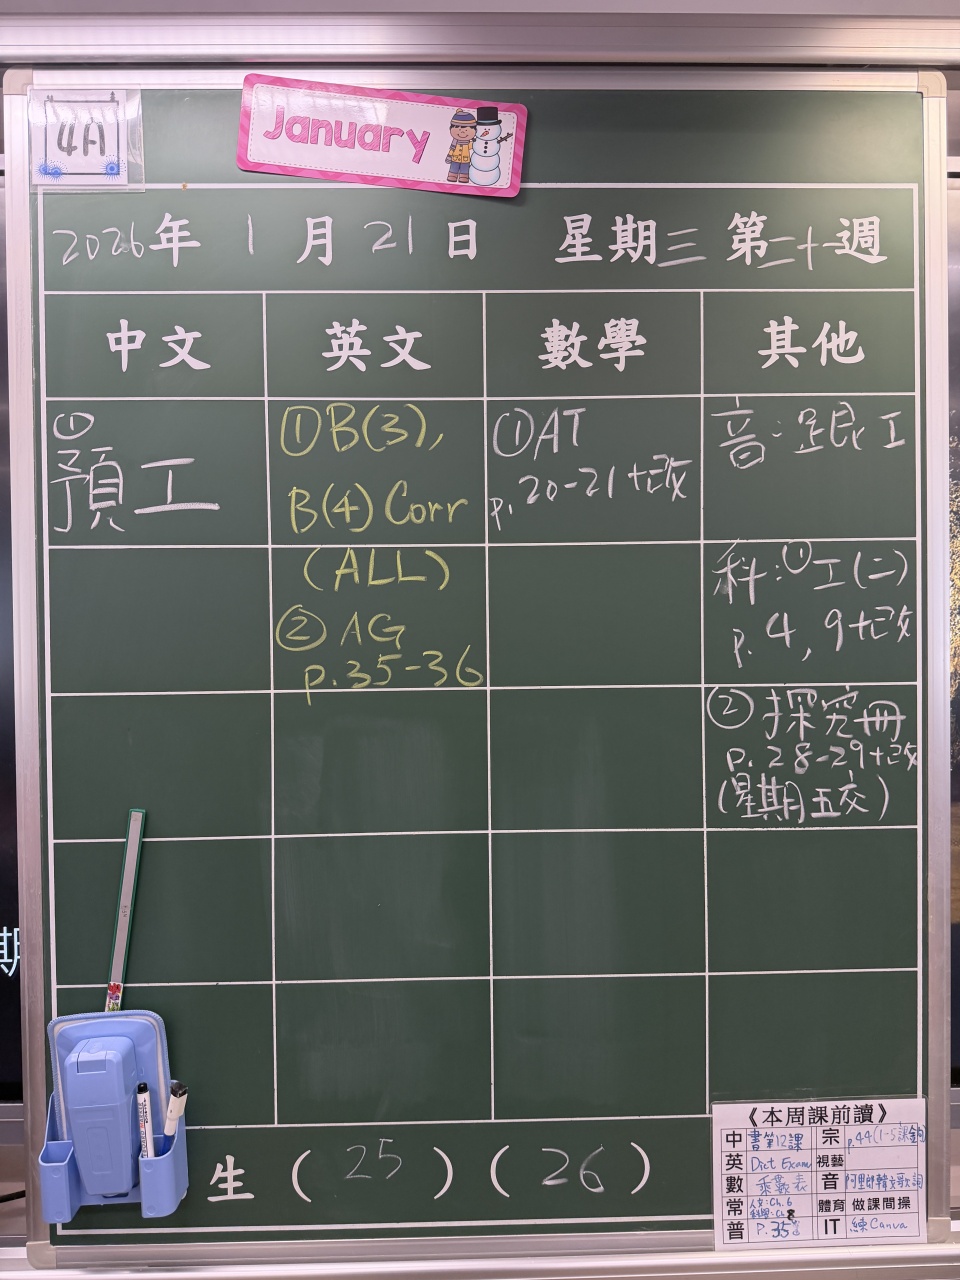 4A
January
2026年1月21日 星期三 第二十一週
中文 英文 數學 其他
①
預工
①B(3),
B(4) Corr
(ALL)
② AG
p.35-36
①AT
p.20-21+改
音:跟工
科:①工(二)
p.4, 9+改
②探究冊
p.28-29+改
(星期五交)
期
生 (25) (26)
《本周課前讀》
中 書第12課 宗 p.44(1-5課金句)
英 Dict Exam 視藝
數 乘數表 音 阿里郎韓文歌詞
常 人文:Ch.6 體育 做課間操
普 p.35 IT 練Canva